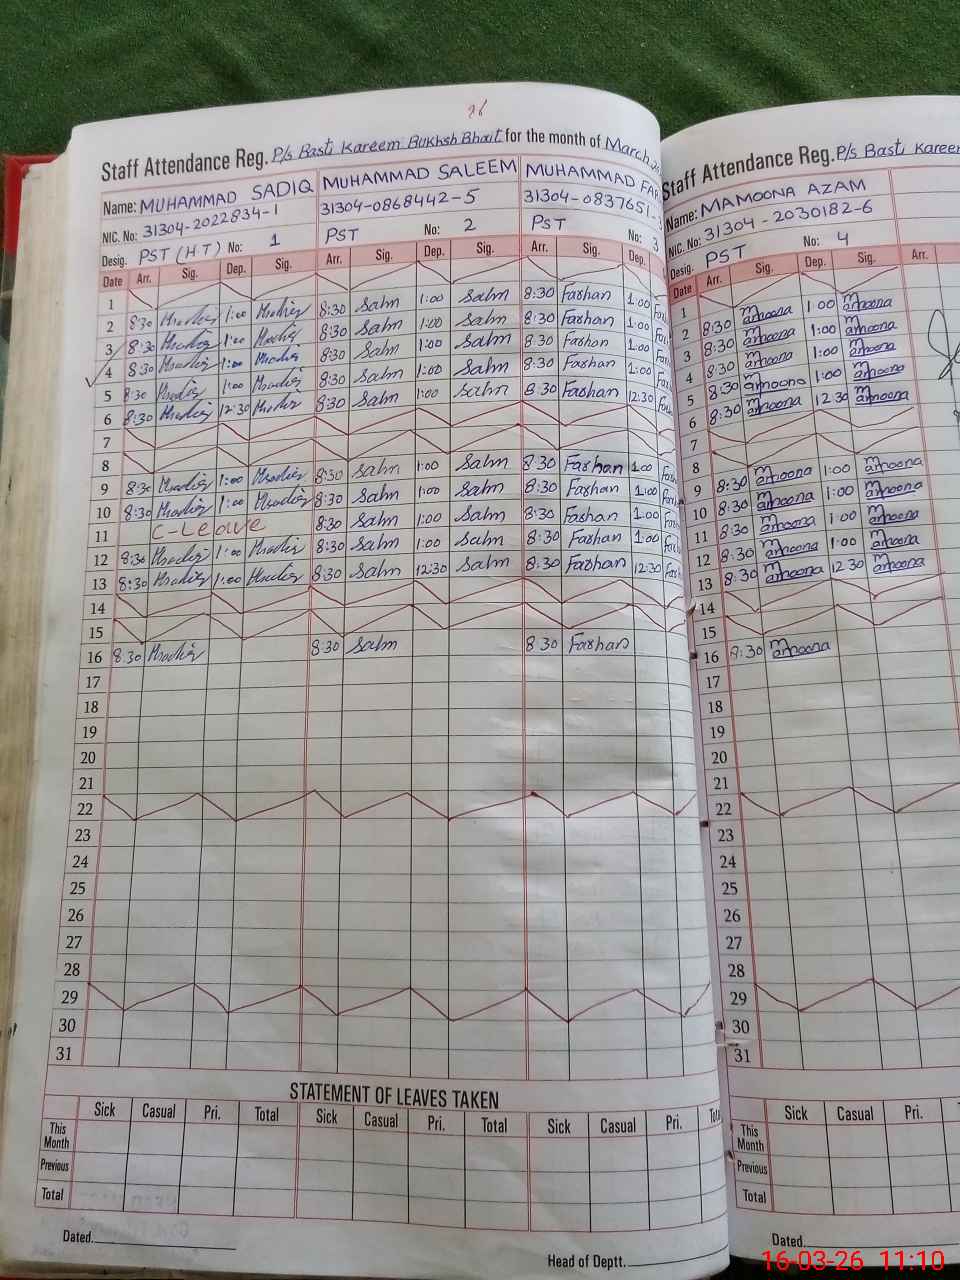 Staff Attendance Reg. P/s Basti Kareem Bukhsh Bhait for the month of March
Name: MUHAMMAD SADIQ MUHAMMAD SALEEM MUHAMMAD FAR
NIC. No: 31304-2022834-1 31304-0868442-5 31304-0837651-
Desig. PST (HT) No: 1 PST No: 2 PST No: 3
Date Arr. Sig. Dep. Sig. Arr. Sig. Dep. Sig. Arr. Sig. Dep.
1
2 8:30 1:00 8:30 Salm 1:00 Salm 8:30 Farhan 1:00
3 8:30 1:00 8:30 Salm 1:00 Salm 8:30 Farhan 1:00
4 8:30 1:00 8:30 Salm 1:00 Salm 8:30 Farhan 1:00
5 8:30 1:00 8:30 Salm 1:00 Salm 8:30 Farhan 1:00
6 8:30 12:30 8:30 Salm 1:00 Salm 8:30 Farhan 12:30
7
8
9 8:30 1:00 8:30 Salm 1:00 Salm 8:30 Farhan 1:00
10 8:30 1:00 8:30 Salm 1:00 Salm 8:30 Farhan 1:00
11 C-Leave 8:30 Salm 1:00 Salm 8:30 Farhan 1:00
12 8:30 1:00 8:30 Salm 1:00 Salm 8:30 Farhan 1:00
13 8:30 1:00 8:30 Salm 12:30 Salm 8:30 Farhan 12:30
14
15
16 8:30 8:30 Salm 8:30 Farhan
17
18
19
20
21
22
23
24
25
26
27
28
29
30
31
STATEMENT OF LEAVES TAKEN
Sick Casual Pri. Total Sick Casual Pri. Total Sick Casual Pri.
This Month
Previous
Total
Dated.
Head of Deptt.
Staff Attendance Reg. P/s Basti Kareem
Name: MAMOONA AZAM
NIC. No: 31304-2030182-6
Desig. PST No: 4
Date Arr. Sig. Dep. Sig. Arr.
1
2 8:30 Mamoona 1:00 Mamoona
3 8:30 Mamoona 1:00 Mamoona
4 8:30 Mamoona 1:00 Mamoona
5 8:30 Mamoona 1:00 Mamoona
6 8:30 Mamoona 12:30 Mamoona
7
8
9 8:30 Mamoona 1:00 Mamoona
10 8:30 Mamoona 1:00 Mamoona
11 8:30 Mamoona 1:00 Mamoona
12 8:30 Mamoona 1:00 Mamoona
13 8:30 Mamoona 12:30 Mamoona
14
15
16 8:30 Mamoona
17
18
19
20
21
22
23
24
25
26
27
28
29
30
31
Sick Casual Pri.
This Month
Previous
Total
Dated.
16-03-26 11:10